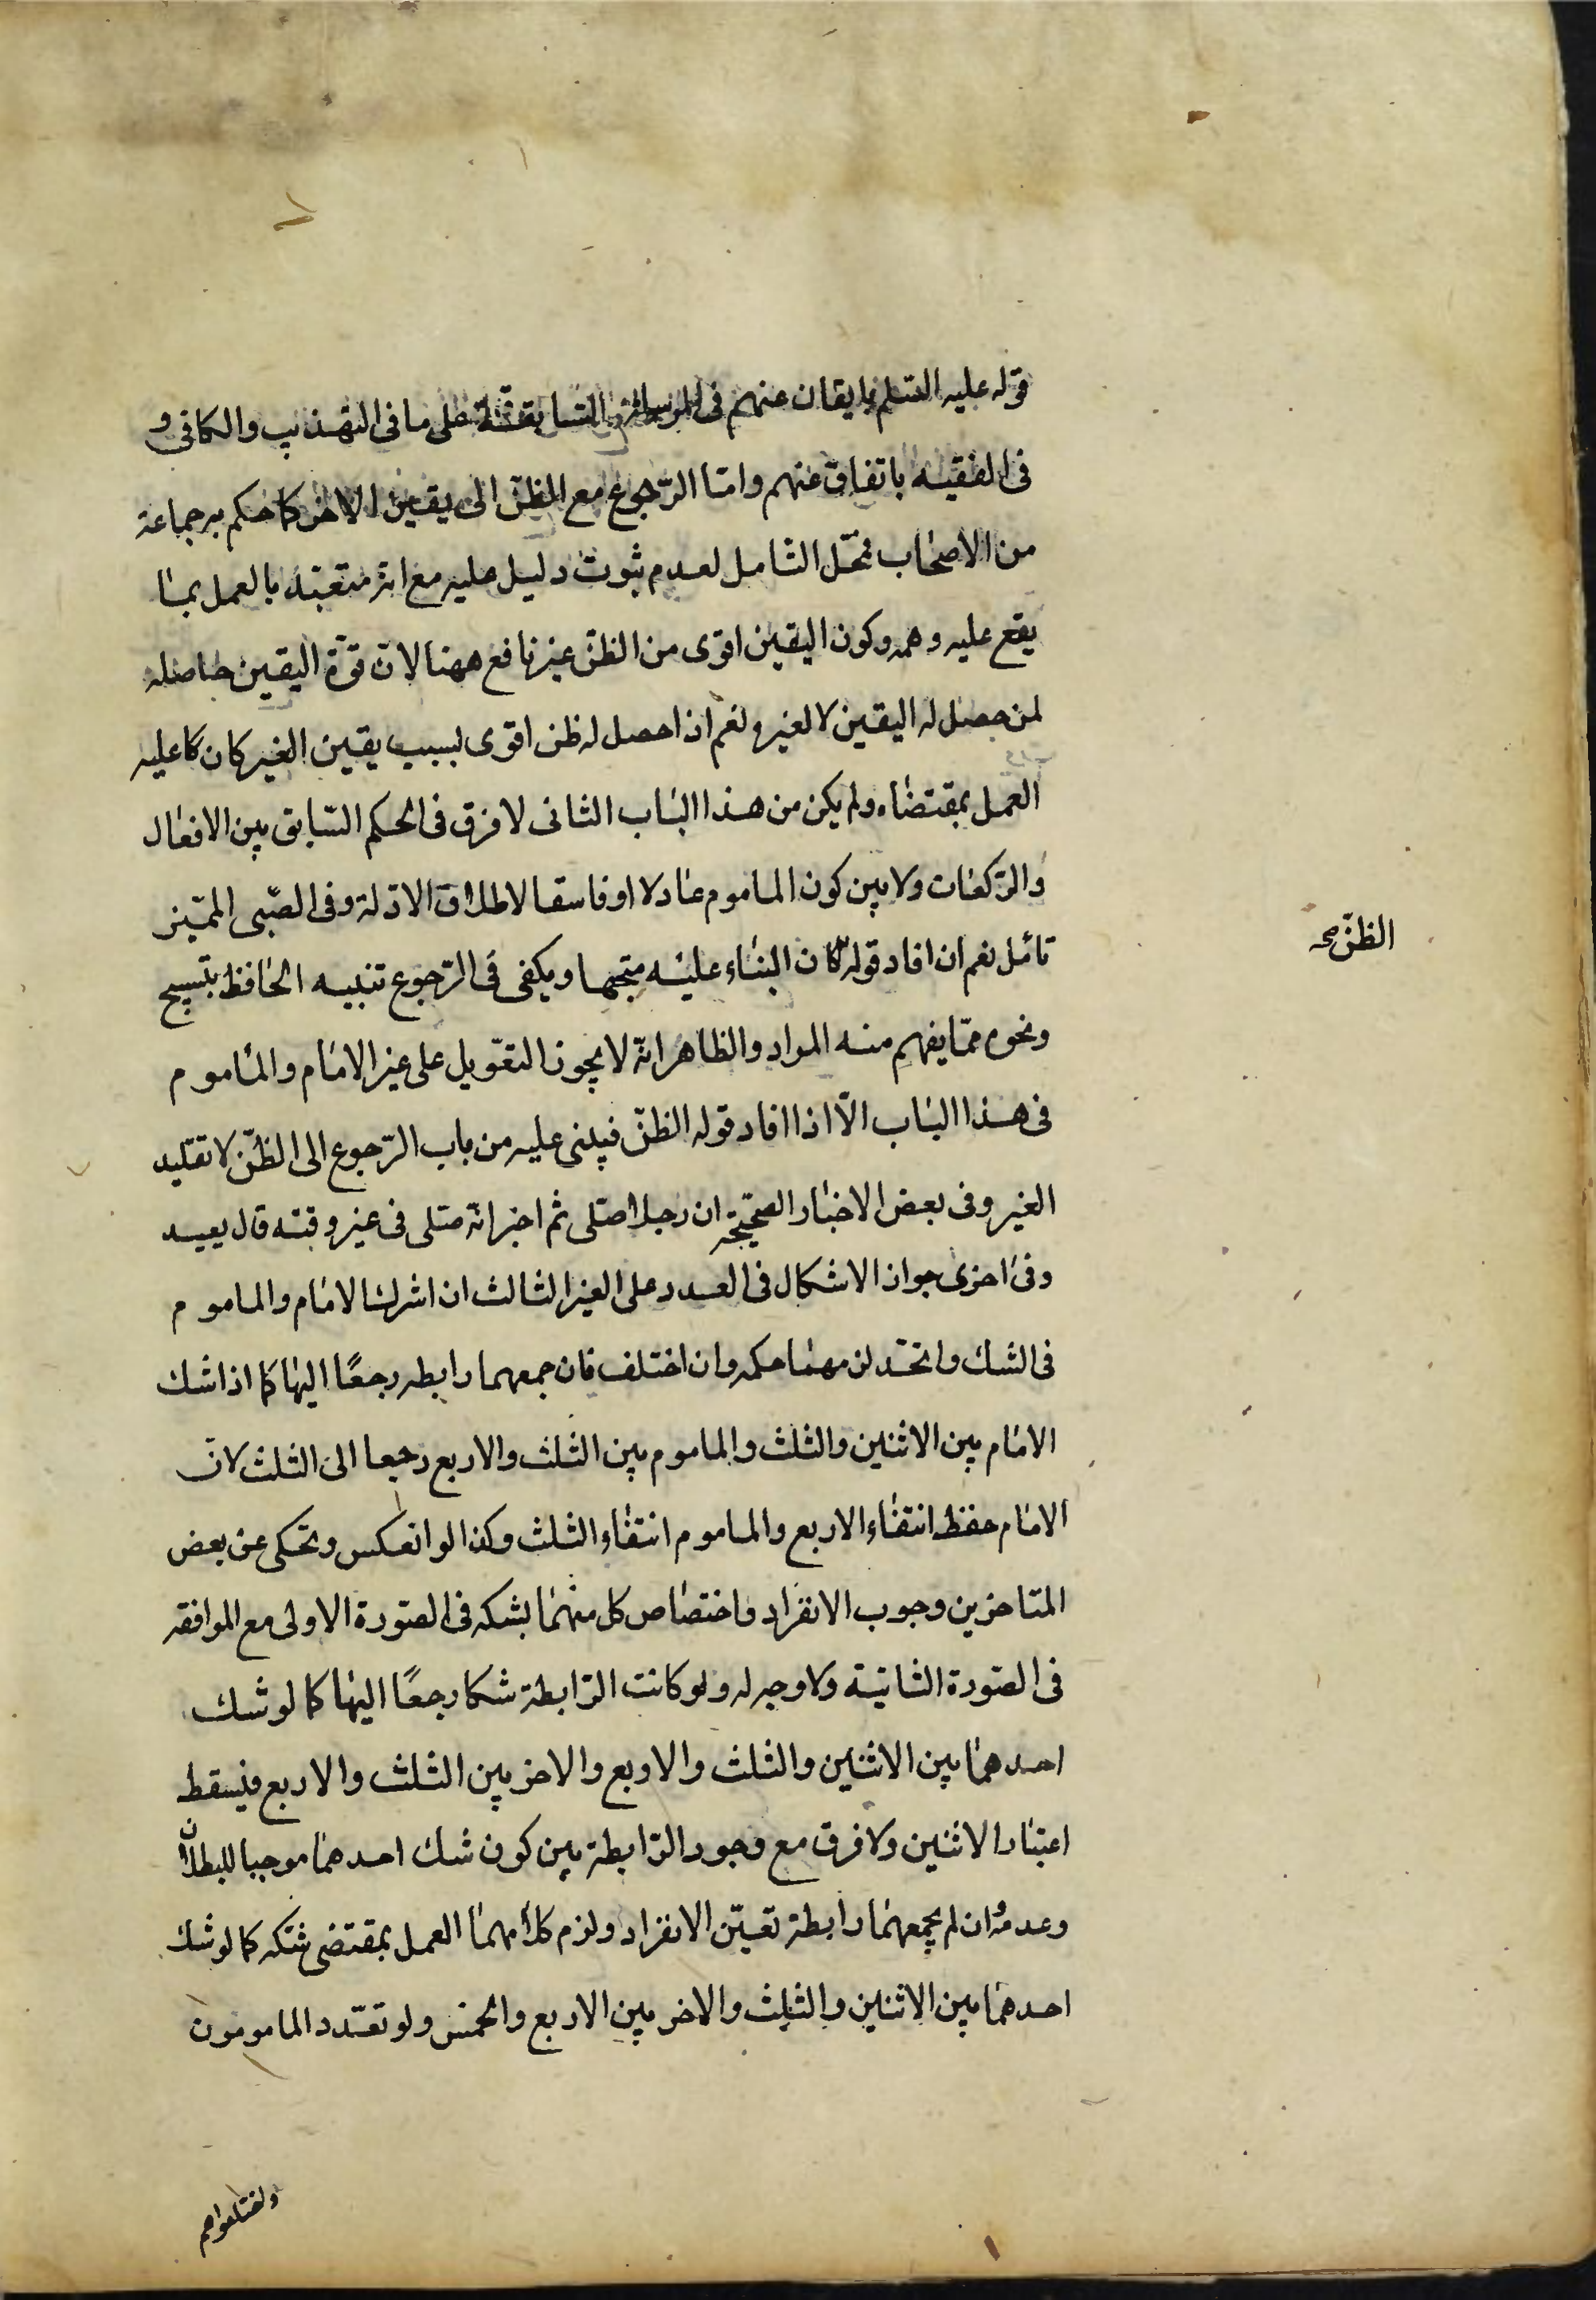 قوله عليه السلم بايقان عنهم فى المرسلة السابقة على ما فى التهذيب والكافى و
فى الفقيه باتفاق عنهم وامّا الرّجوع مع الظنّ الى يقين الاخر كما حكم به جماعة
من الاصحاب فمحّل التامل لعدم ثبوت دليل عليه مع انّه متعبّد بالعمل بما
يقع عليه وهمه وكون اليقين اقوى من الظنّ غير نافع ههنا لانّ قوّة اليقين حاصلة
لمن حصل له اليقين لا لغيره نعم اذا حصل له ظن اقوى بسبب يقين الغير كان عليه
العمل بمقتضاه ولم يكن من هذا الباب الثانى لا فرق فى الحكم السّابق بين الافعال
والرّكعات ولا بين كون الماموم عادلا او فاسقا لاطلاق الادّلة وفى الصّبى المميّز
تامّل نعم ان افاد قوله كان البناء عليه متجها ويكفى فى الرّجوع تنبيه الحافظ بتسبيح
الظنّ صح
ونحوه ممّا يفهم منه المراد والظاهر انّه لا يجوز التعّويل على غير الامام والماموم
فى هذا الباب الّا اذا افاد قوله الظنّ فيبنى عليه من باب الرّجوع الى الظنّ لا تقليد
الغير وفى بعض الاخبار الصحّيحة ان رجلا صلّى ثم اخبر انّه صلّى فى غير وقته قال يعيد
وفى اخرى جواز الاتكال فى العدد على الغير الثالث ان اشرك الامام والماموم
فى الشك واتحّد لزمهما حكمه وان اختلف فان جمعهما رابطه رجعًا اليها كما اذا شك
الامام بين الاثنين والثلث والماموم بين الثلث والاربع رجعا الى الثلث لانّ
الامام حفظ انتفاء الاربع والماموم انتفاء الثلث وكذا لو انعكس وتحكى عن بعض
المتاخرين وجوب الانفراد واختصاص كل منهما بشكه فى الصّورة الاولى مع الموافقه
فى الصّورة الثانية ولا وجه له ولو كانت الرّابطة شكا رجعًا اليها كما لو شك
احدهما بين الاثنين والثلث والاربع والاخر بين الثلث والاربع فيسقط
اعتبار الاثنين ولا فرق مع وجود الرّابطة بين كون شك احدهما موجبا للبطلان
وعدمه وان لم يجمعهما رابطة تعيّن الانفراد ولزم كلا منهما العمل بمقتضى شكّه كما لو شك
احدهما بين الاثنين والثلث والاخر بين الاربع والخمس ولو تعدّد المامومون
واختلفوا هم